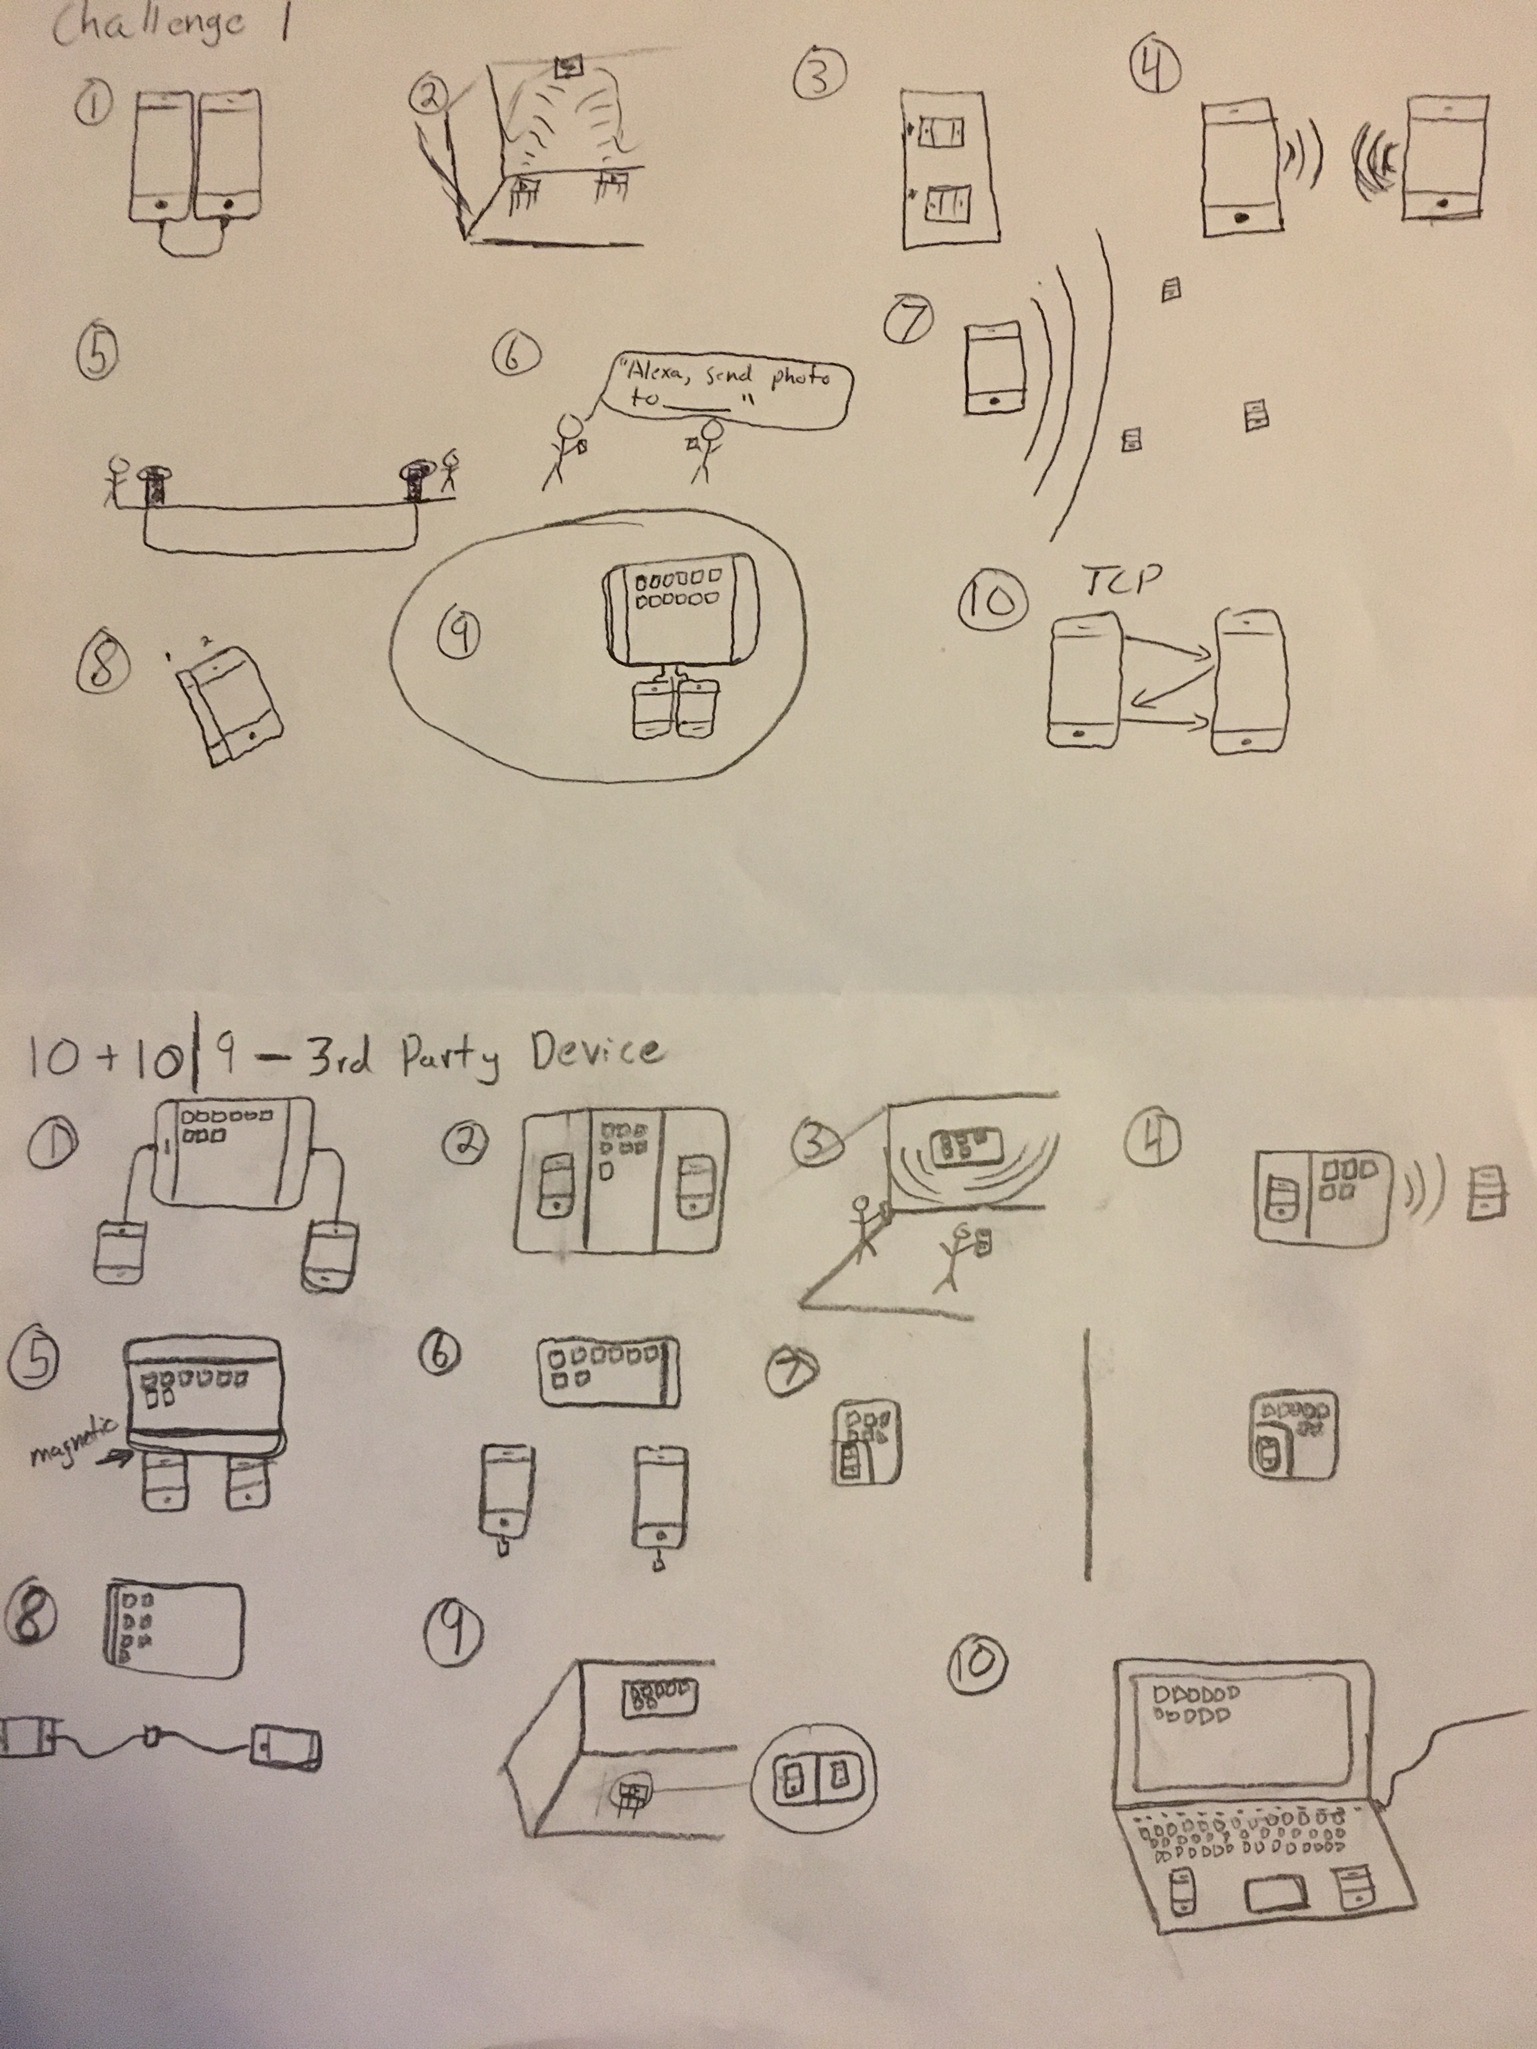 Challenge 1
① ② ③ ④
⑤ ⑥ "Alexa, send photo
to ____ "
⑦
⑧ ⑨ ⑩ TCP
10 + 10 | 9 – 3rd Party Device
① ② ③ ④
⑤ ⑥ ⑦
magnetic
⑧ ⑨ ⑩